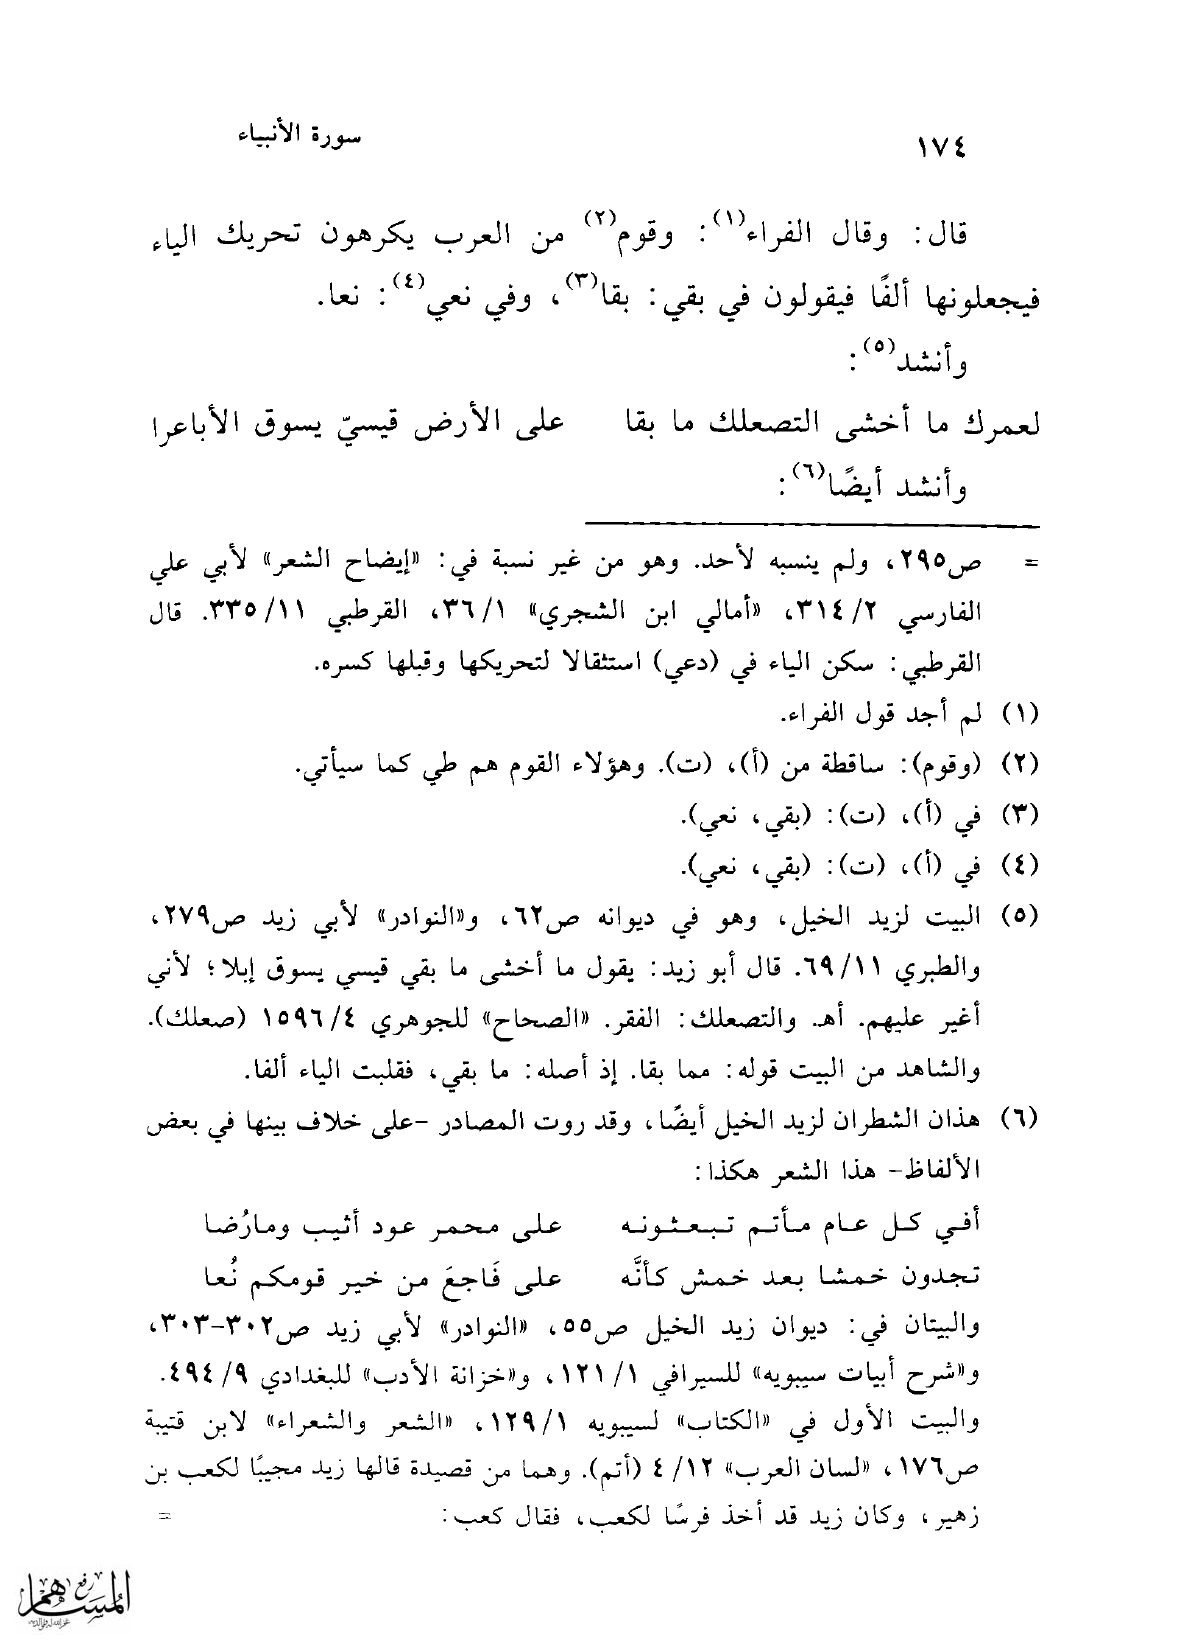 ١٧٤
سورة الأنبياء
قال: وقال الفراء(١): وقوم(٢) من العرب يكرهون تحريك الياء
فيجعلونها ألفًا فيقولون في بقي: بقا(٣)، وفي نعي(٤): نعا.
وأنشد(٥):
لعمرك ما أخشى التصعلك ما بقا على الأرض قيسيّ يسوق الأباعرا
وأنشد أيضًا(٦):
= ص٢٩٥، ولم ينسبه لأحد. وهو من غير نسبة في: «إيضاح الشعر» لأبي علي
الفارسي ٢/ ٣١٤، «أمالي ابن الشجري» ١/ ٣٦، القرطبي ١١/ ٣٣٥. قال
القرطبي: سكن الياء في (دعي) استثقالا لتحريكها وقبلها كسره.
(١) لم أجد قول الفراء.
(٢) (وقوم): ساقطة من (أ)، (ت). وهؤلاء القوم هم طي كما سيأتي.
(٣) في (أ)، (ت): (بقي، نعي).
(٤) في (أ)، (ت): (بقي، نعي).
(٥) البيت لزيد الخيل، وهو في ديوانه ص٦٢، و«النوادر» لأبي زيد ص٢٧٩،
والطبري ١١/ ٦٩. قال أبو زيد: يقول ما أخشى ما بقي قيسي يسوق إبلا؛ لأني
أغير عليهم. أهـ. والتصعلك: الفقر. «الصحاح» للجوهري ٤/ ١٥٩٦ (صعلك).
والشاهد من البيت قوله: مما بقا. إذ أصله: ما بقي، فقلبت الياء ألفا.
(٦) هذان الشطران لزيد الخيل أيضًا، وقد روت المصادر -على خلاف بينها في بعض
الألفاظ- هذا الشعر هكذا:
أفي كل عام مأتم تبعثونه على محمر عود أثيب ومارُضا
تجدون خمشا بعد خمش كأنَّه على فَاجعَ من خير قومكم نُعا
والبيتان في: ديوان زيد الخيل ص٥٥، «النوادر» لأبي زيد ص٣٠٢-٣٠٣،
و«شرح أبيات سيبويه» للسيرافي ١/ ١٢١، و«خزانة الأدب» للبغدادي ٩/ ٤٩٤.
والبيت الأول في «الكتاب» لسيبويه ١/ ١٢٩، «الشعر والشعراء» لابن قتيبة
ص١٧٦، «لسان العرب» ١٢/ ٤ (أتم). وهما من قصيدة قالها زيد مجيبًا لكعب بن
زهير، وكان زيد قد أخذ فرسًا لكعب، فقال كعب: =
رفع
المساهم